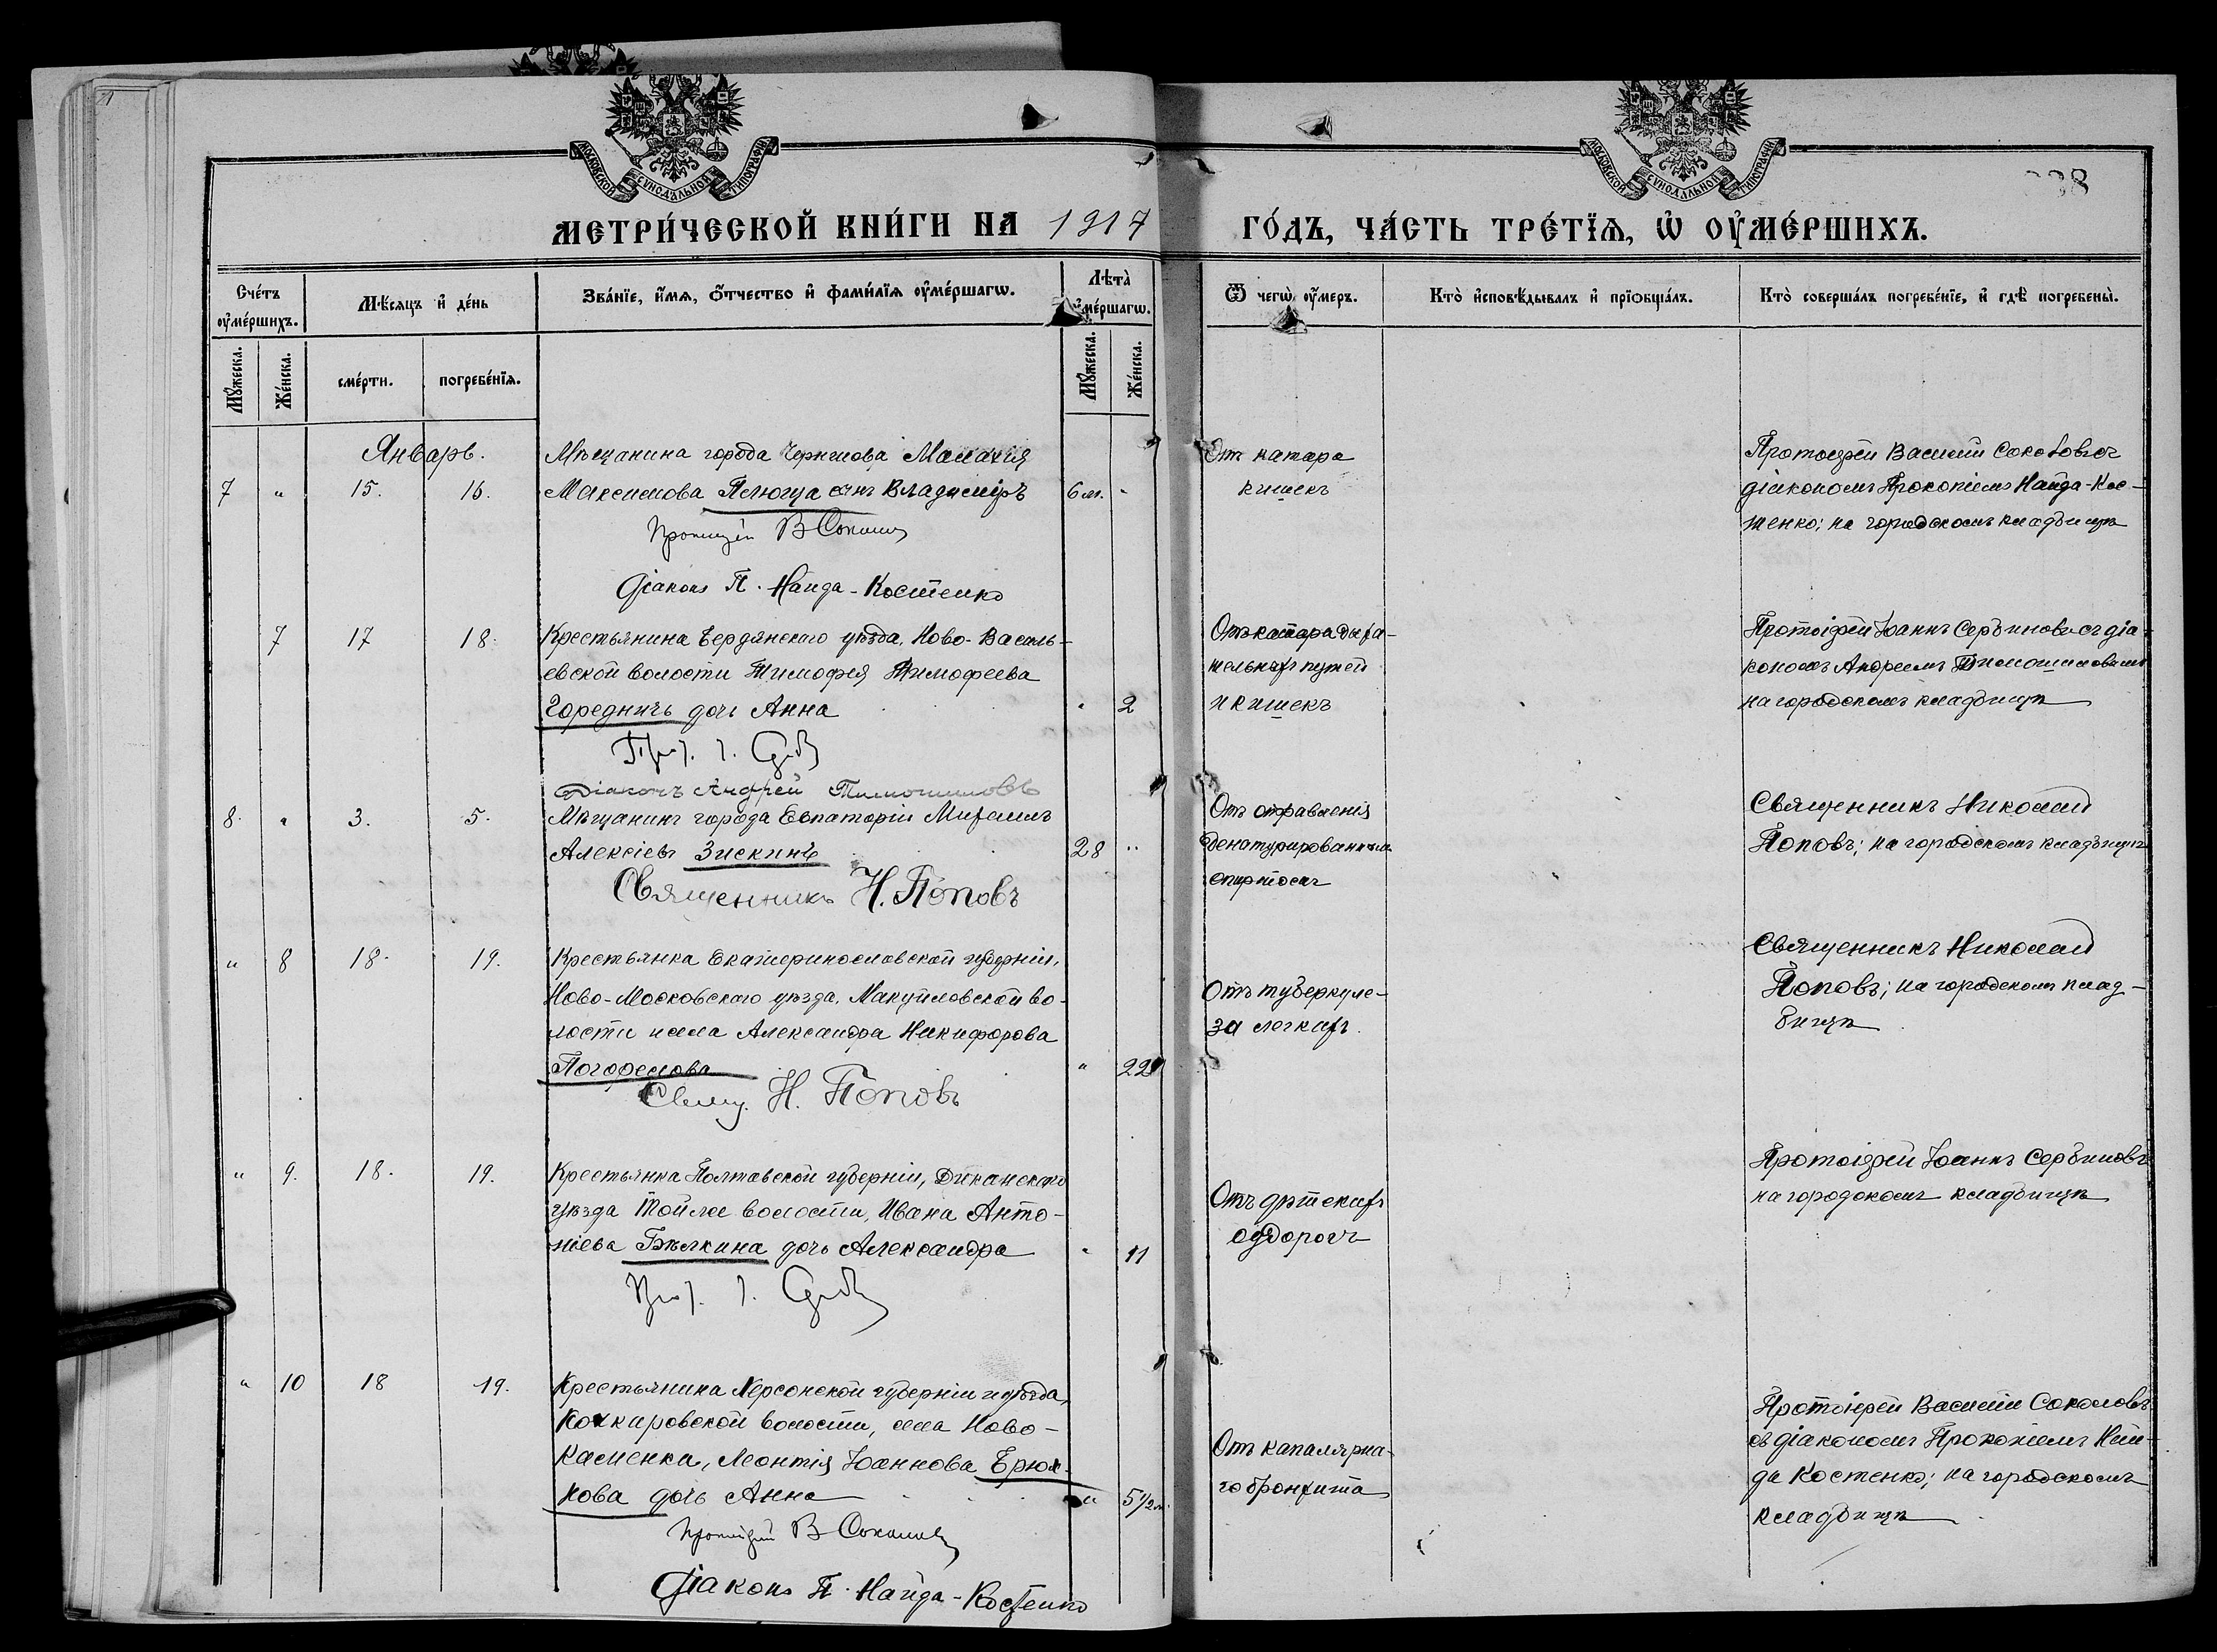 МОСКОВСКОЙ СУНОДАЛЬНОЙ ТИПОГРАФІИ
МОСКОВСКОЙ СУНОДАЛЬНОЙ ТИПОГРАФІИ
338
МЕТРИ́ЧЕСКОЙ КНИ́ГИ НА 1917 ГО́ДЪ, ЧА́СТЬ ТРЕ́ТЇѦ, Ѡ ОУМЕ́РШИХЪ.
Сче́тъ оумершихъ.
Мѣ́сяцъ и де́нь
Зва́нїе, и́мя, о́тчество и фами́лїя оуме́ршагѡ.
Лѣта̀ оуме́ршагѡ.
Ѿ чегѡ̀ оу́меръ.
Кто̀ исповѣ́дывалъ и прїобща́лъ.
Кто̀ соверша́лъ погребе́нїе, и гдѣ̀ погребены̀.
Му́жеска.
Же́нска.
сме́рти.
погребе́нїя.
Му́жеска.
Же́нска.
Январь.
7 " 15. 16.
Мѣщанина города Чернигова Малахія
Максимова Плюща сынъ Владиміръ 6 м. "
Протоіерей В Соколовъ
Діаконъ П. Найда-Костенко
Отъ катара
кишекъ
Протоіерей Василій Соколовъ съ
діакономъ Прокопіемъ Найда-Кос-
тенко; на городскомъ кладбищѣ
7 17 18.
Крестьянина Бердянскаго уѣзда, Ново-Василь-
евской волости Тимофея Тимофеева
Городничь дочь Анна " 2
Прот. І. Серб
Діаконъ Андрей Тимошиловъ
Отъ катара дыха-
тельныхъ путей
и кишекъ
Протоіерей Іоаннъ Сербиновъ съ діа-
кономъ Андреемъ Тимошиловымъ
на городскомъ кладбищѣ
8. " 3. 5.
Мѣщанинъ города Евпаторіи Михаилъ
Алексіевъ Зискинъ 28 "
Священникъ Н. Поповъ
Отъ отравленія
денатурированнымъ
спиртомъ
Священникъ Николай
Поповъ; на городскомъ кладбищѣ
" 8 18. 19.
Крестьянка Екатеринославской губерніи,
Ново-Московскаго уѣзда, волости
села Александра Никифорова
" 22
Свящ. Н. Поповъ
Отъ туберкуле-
за легкихъ.
Священникъ Николай
Поповъ; на городскомъ клад-
бищѣ
" 9. 18. 19.
Крестьянка Полтавской губерніи, Диканскаго
уѣзда той же волости, Ивана Анто-
ніева Бѣлкина дочь Александра " 11
Прот. І. Серб
Отъ дѣтскихъ
судорогъ
Протоіерей Іоаннъ Сербиновъ
на городскомъ кладбищѣ
" 10 18 19.
Крестьянина Херсонской губерніи и уѣзда,
Качкаровской волости, села Ново-
Каменка, Леонтія Іоаннова Ерюх-
кова дочь Анна " 5½ м.
Протоіерей В Соколовъ
Діаконъ П. Найда-Костенко
Отъ капалярна-
го бронхита
Протоіерей Василій Соколовъ
съ діакономъ Прокопіемъ Най-
да Костенко; на городскомъ
кладбищѣ